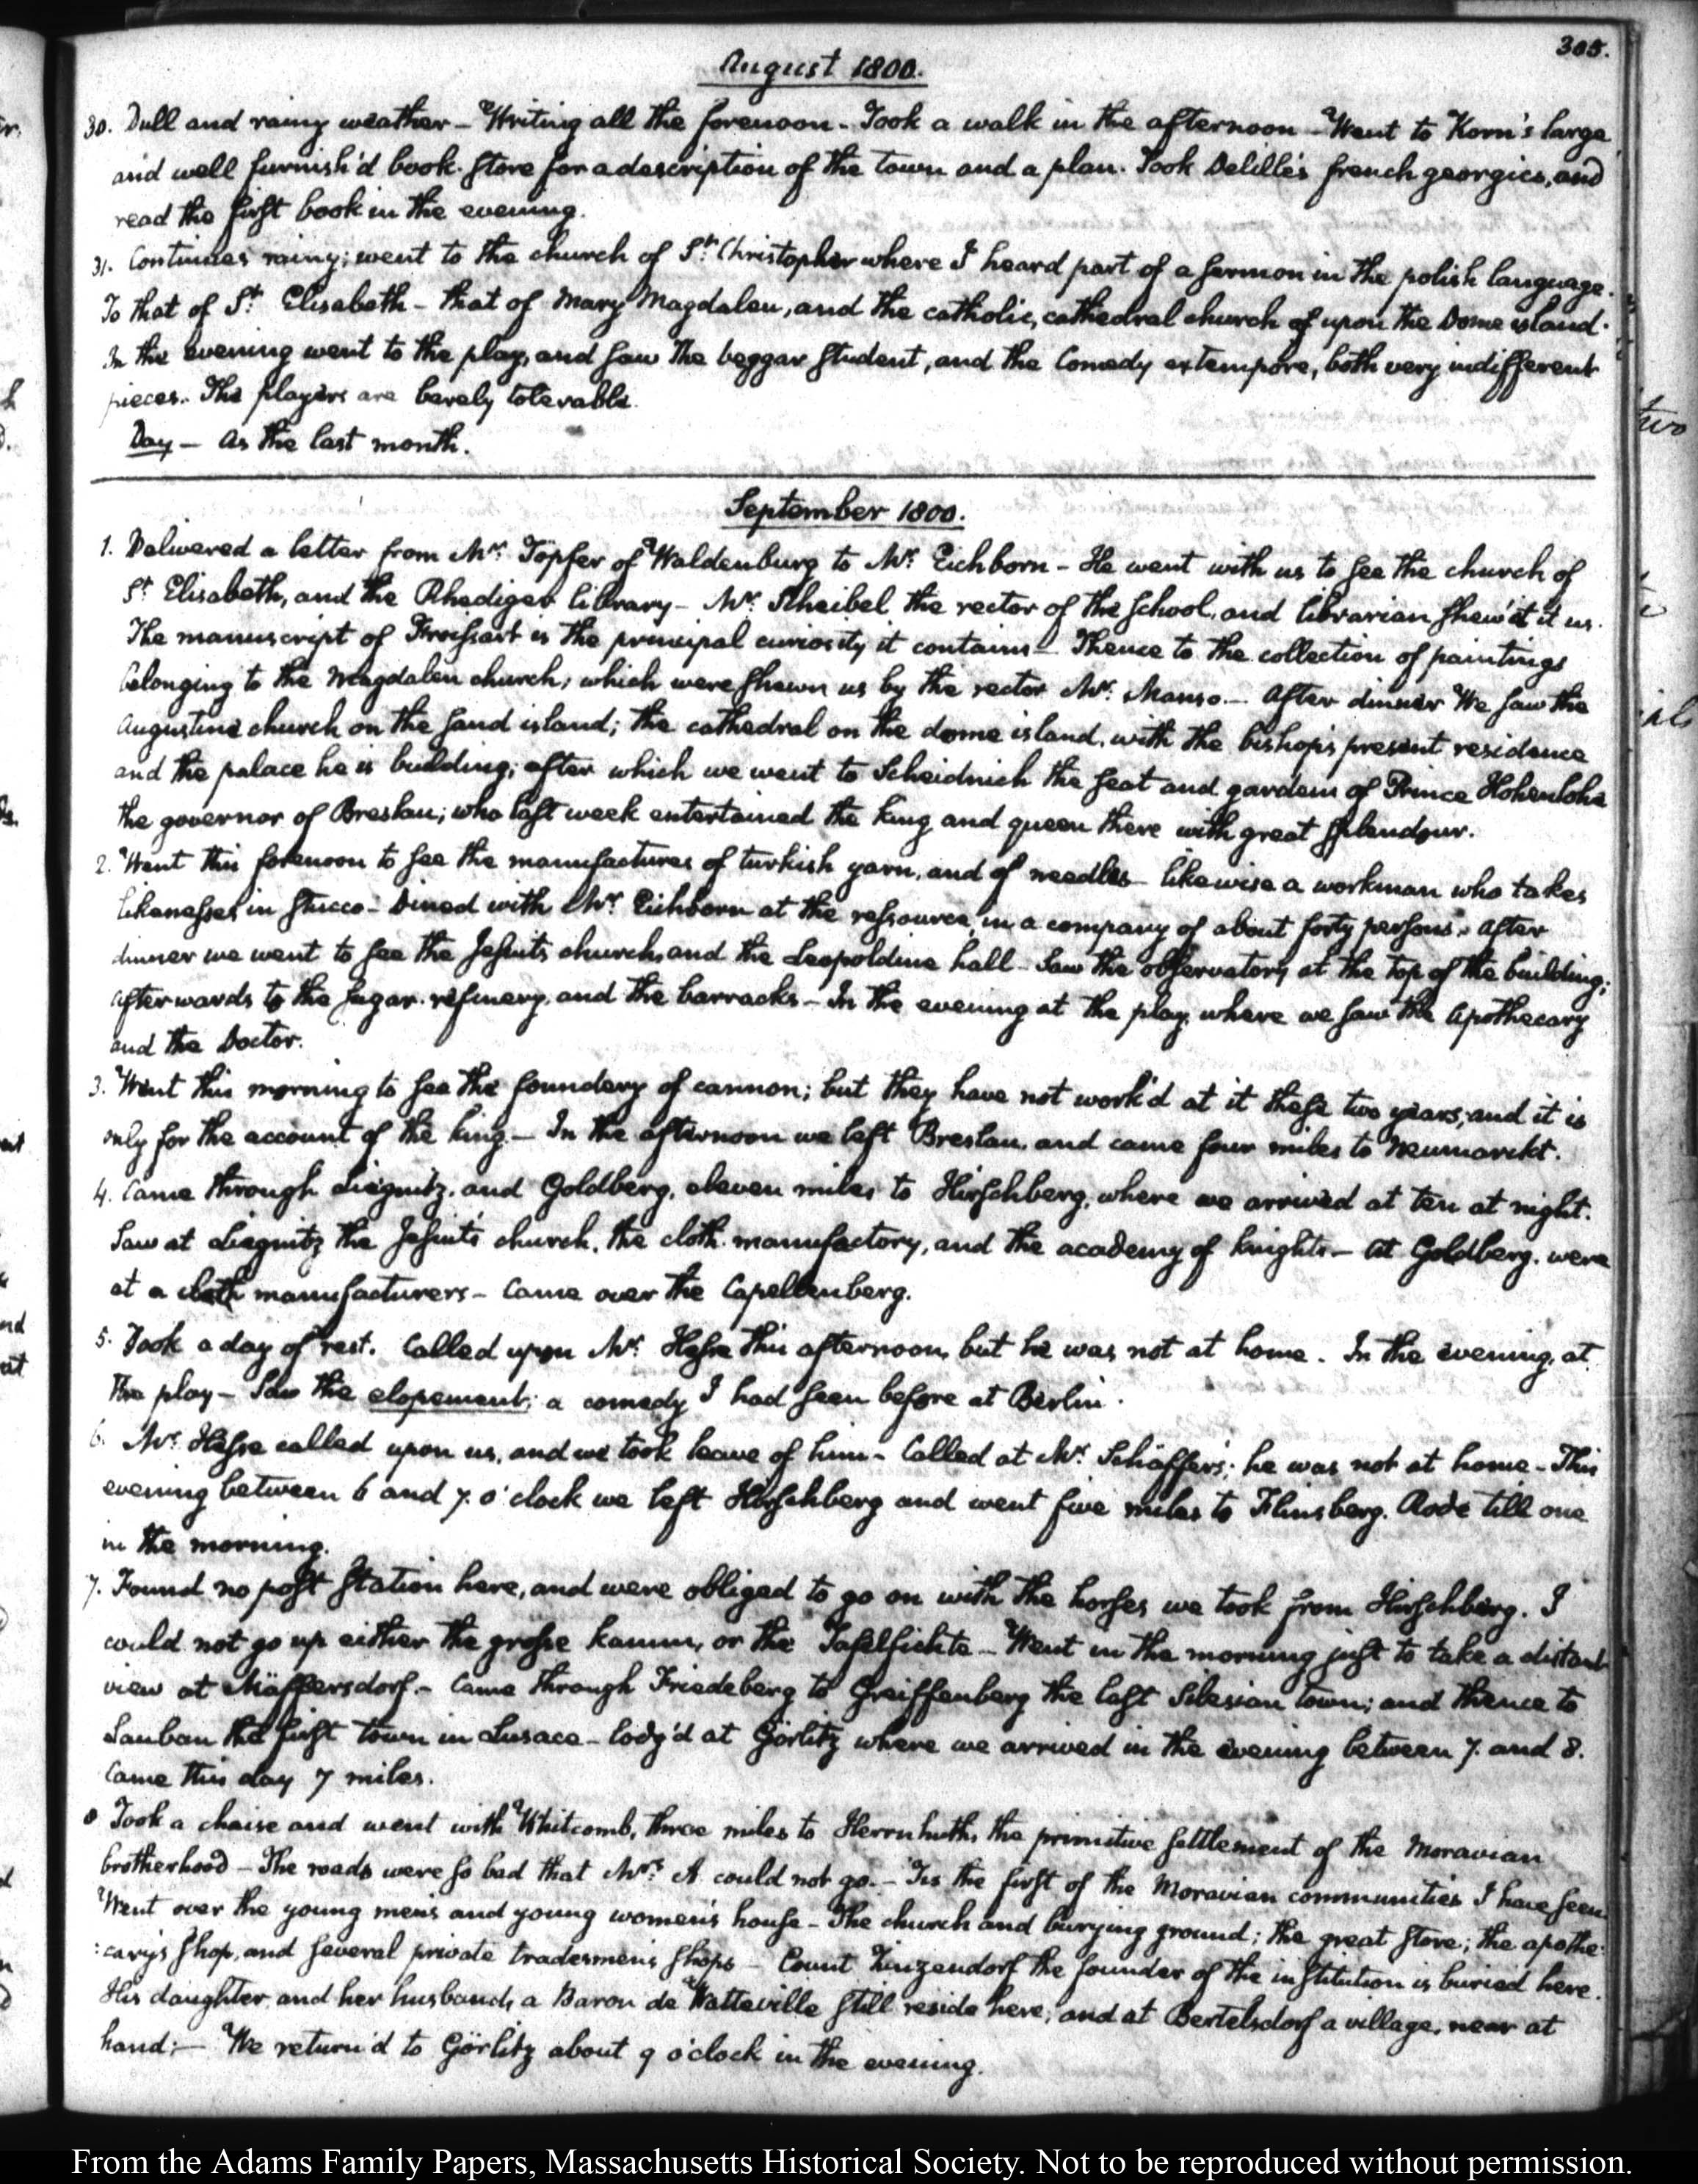 305.
August 1800.
30. Dull and rainy weather – Writing all the forenoon – Took a walk in the afternoon – Went to Korn's large
and well furnish'd book-store for a description of the town and a plan. Took Delille's french georgics, and
read the first book in the evening.
31. Continues rainy; went to the church of St. Christopher where I heard part of a sermon in the polish language.
To that of St. Elisabeth – that of Mary Magdalen, and the catholic, cathedral church of upon the Dome island.
In the evening went to the play, and saw the beggar student, and the Comedy extempore, both very indifferent
pieces. The players are barely tolerable.
Day – As the last month.
September 1800.
1. Delivered a letter from Mr. Töpfer of Waldenburg to Mr. Eichborn – He went with us to see the church of
St. Elisabeth, and the Rhediger library – Mr. Scheibel the rector of the school, and librarian shew'd it us.
The manuscript of Froissart is the principal curiosity it contains – Thence to the collection of paintings
belonging to the Magdalen church; which were shewn us by the rector Mr. Manso. – After dinner We saw the
Augustine church on the sand island; the cathedral on the dome island, with the bishop's present residence
and the palace he is building; after which we went to Scheidnich the seat and gardens of Prince Hohenlohe
the governor of Breslau; who last week entertained the king and queen there with great splendour.
2. Went this forenoon to see the manufactures of turkish yarn, and of needles – likewise a workman who takes
likenesses in stucco – Dined with Mr. Eichborn at the ressource, in a company of about forty persons. After
dinner we went to see the Jesuits church, and the Leopoldine hall – Saw the observatory at the top of the building;
afterwards to the sugar-refinery, and the barracks – In the evening at the play, where we saw the Apothecary
and the Doctor.
3. Went this morning to see the foundery of cannon; but they have not work'd at it these two years; and it is
only for the account of the king. – In the afternoon we left Breslau, and came four miles to Neumarckt.
4. Came through Liegnitz, and Goldberg, eleven miles to Hirschberg, where we arrived at ten at night.
Saw at Liegnitz the Jesuit's church, the cloth-manufactory, and the academy of knights – At Goldberg, were
at a cloth manufacturers – Came over the Capellenberg.
5. Took a day of rest. Called upon Mr. Hesse this afternoon, but he was not at home. In the evening, at
the play – Saw the elopement; a comedy I had seen before at Berlin.
6. Mr. Hesse called upon us, and we took leave of him – Called at Mr. Schäffer's; he was not at home – This
evening between 6 and 7. o'clock we left Hirschberg and went five miles to Flinsberg. Rode till one
in the morning.
7. Found no post station here, and were obliged to go on with the horses we took from Hirschberg. I
could not go up either the grosse kamm, or the Tafelfichte – Went in the morning just to take a distant
view at Mäffersdorf. – Came through Friedeberg to Greiffenberg the last Silesian town; and thence to
Lauban the first town in Lusace – lodg'd at Görlitz where we arrived in the evening between 7. and 8.
Came this day 7 miles.
8 Took a chaise and went with Whitcomb, three miles to Herrnhuth, the primitive settlement of the Moravian
brotherhood – The roads were so bad that Mrs. A. could not go. – 'Tis the first of the Moravian communities I have seen.
Went over the young men's and young women's house – The church and burying ground; the great store; the apothe-
:cary's shop, and several private tradesmen's shops – Count Zinzendorf the founder of the institution is buried here.
His daughter, and her husband, a Baron de Watteville still reside here; and at Bertelsdorf a village, near at
hand; – We return'd to Görlitz about 9 o'clock in the evening.
two
From the Adams Family Papers, Massachusetts Historical Society. Not to be reproduced without permission.